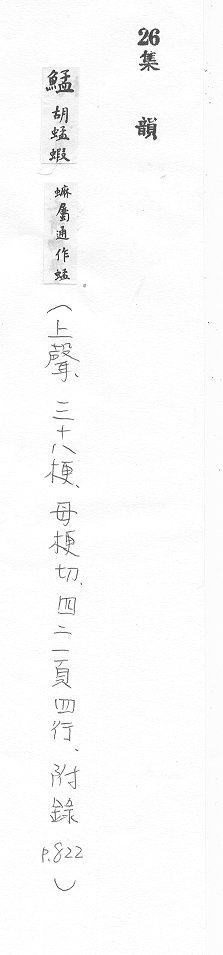 26集韻
鯭 胡蜢蝦 䗫屬通作蜢。(上聲、三十八梗、母梗切、四二一頁四行、附錄 P.822)